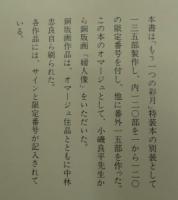 本書は、もう一つの彩月」特装本の別装として
一三五部製作し、内一二〇部を一から一二〇
の限定番号を付し、他に番外一五部を作った。
この本のオマージュとして、小磯良平先生か
ら銅版画「婦人像」をいただいた。
銅版画作品は、オマージュ佳品とともに中林
忠良自ら刷られた。
各作品には、サインと限定番号が記入されて
いる。